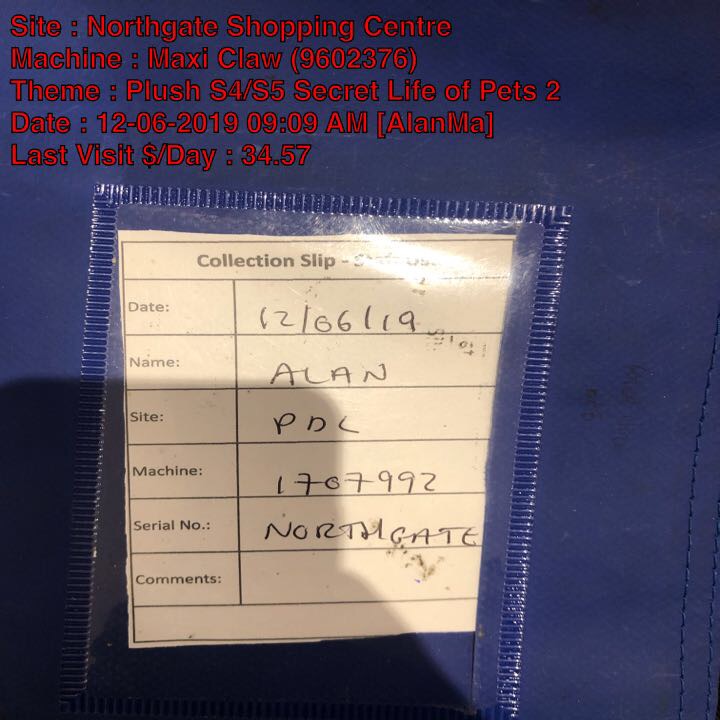 Site : Northgate Shopping Centre
Machine : Maxi Claw (9602376)
Theme : Plush S4/S5 Secret Life of Pets 2
Date : 12-06-2019 09:09 AM [AlanMa]
Last Visit $/Day : 34.57
Collection Slip -
Date: 12/06/19
Name: ALAN
Site: PDL
Machine: 1707992
Serial No.: NORTHGATE
Comments: